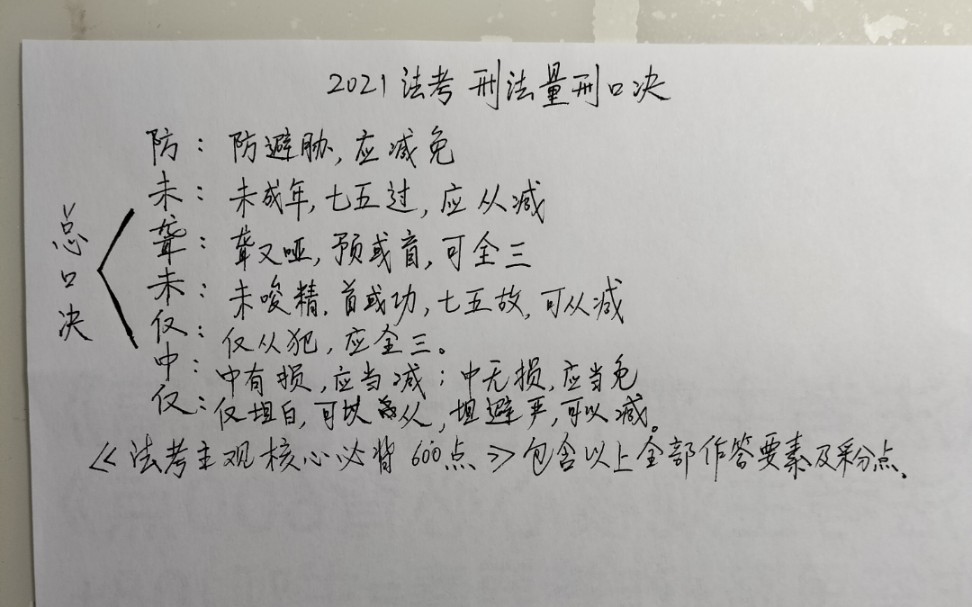 2021法考 刑法量刑口决
总口决
防：防避胁，应减免
未：未成年，七五过，应从减
聋：聋又哑，预或盲，可全三
未：未唆精，首或功，七五故，可从减
仅：仅从犯，应全三。
中：中有损，应当减；中无损，应当免
仅：仅坦白，可以从，坦避严，可以减。
《法考主观核心必背600点》包含以上全部作答要素及采分点。